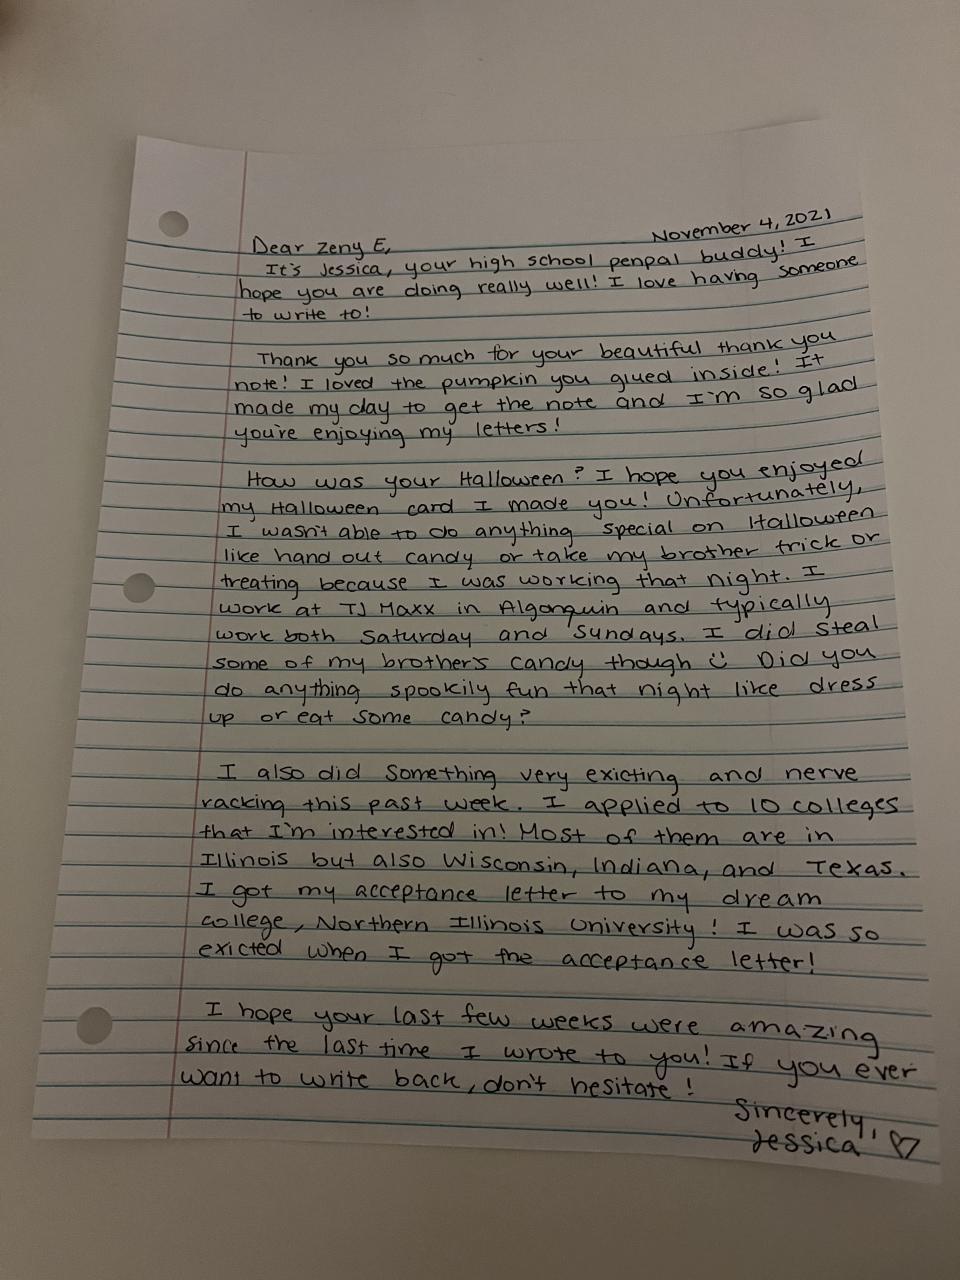 November 4, 2021
Dear Zeny E,
It's Jessica, your high school penpal buddy! I
hope you are doing really well! I love having someone
to write to!
Thank you so much for your beautiful thank you
note! I loved the pumpkin you glued inside! It
made my day to get the note and I'm so glad
you're enjoying my letters!
How was your Halloween? I hope you enjoyed
my Halloween card I made you! Unfortunately,
I wasn't able to do anything special on Halloween
like hand out candy or take my brother trick or
treating because I was working that night. I
work at TJ Maxx in Algonquin and typically
work both Saturday and Sundays. I did steal
some of my brother's candy though ☺ Did you
do anything spookily fun that night like dress
up or eat some candy?
I also did something very exicting and nerve
racking this past week. I applied to 10 colleges
that I'm interested in! Most of them are in
Illinois but also Wisconsin, Indiana, and Texas.
I got my acceptance letter to my dream
college, Northern Illinois University! I was so
exicted when I got the acceptance letter!
I hope your last few weeks were amazing
since the last time I wrote to you! If you ever
want to write back, don't hesitate!
Sincerely,
Jessica ♡